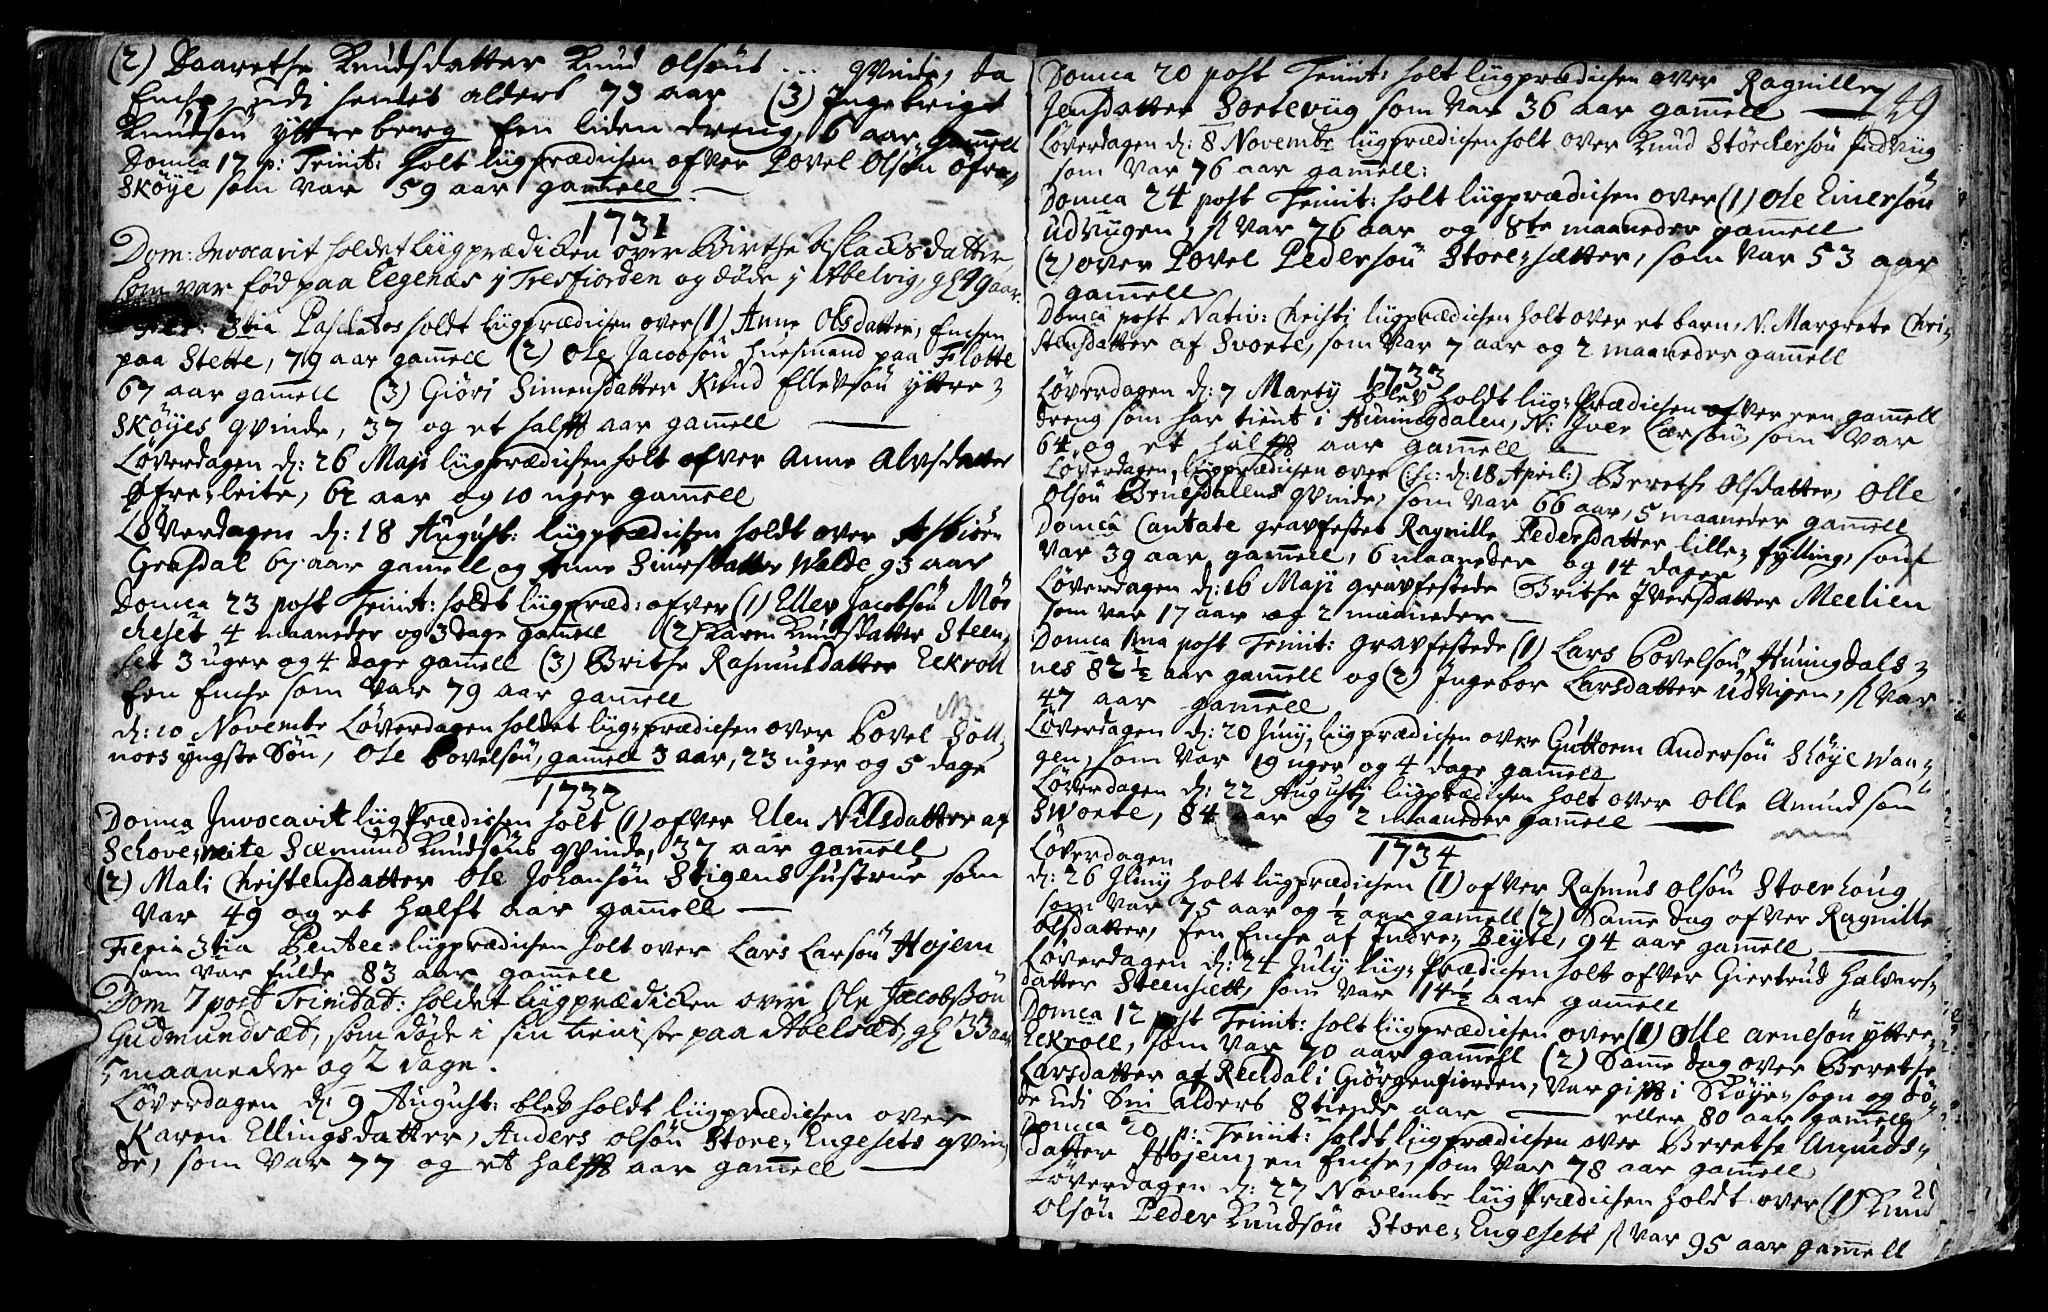 (2) Daarethe Knudsdatter Knud Olsøns .... qvinde, da
Enche, udi hendes alders 73 aar (3) Ingebrigt
Knudsøn Ytterberg Een liden dreng, 6 aar gam̄ell
Domca 17 p: Trinit: holt liigprædichen ofver Povel Olsøn øfre
Skøye som var 59 aar gam̄ell
1731
Dom: Invocavit holdet Liigprædicken over Birthe Aslacksdatter,
som var fød paa Eegenæs i Tresfiorden og døde i Abelvig, gl 49 aar.
3tia Paschatos holdt liigprædichen over (1) Anne Olsdatter, Enchen
paa Stette, 79 aar gam̄ell (2) Ole Jacobsøn Huusmand paa Flotte
67 aar gam̄ell (3) Giøri Simensdatter Knud Ellevsøn Yttre=
Skøyes qvinde, 37 og et halfft aar gam̄ell
Løverdagen d: 26 Maji liigprædichen holt ofver Anne Alvsdatter
Øfre=leite, 62 aar og 10 uger gam̄ell
Løverdagen d: 18 August: liigprædichen holdt over Asbiørn
Grasdal 67 aar gam̄ell og Anne Siversdatter Walde 93 aar
Domca 23 post Trinit: holdt liigpræd: ofver (1) Ellev Jacobsøn Mø
cheset 4 maaneder og 3 dage gam̄ell (2) Karen Knudsdatter Steen=
set 3 uger og 4 dage gam̄ell (3) Brithe Rasmusdatter Ekroll
Een Enche som var 79 aar gam̄ell
d: 10 Novembr Løverdagen holdet liig=prædichen over Povel Søll
nors yngste Søn, Ole Povelsøn, gam̄ell 3 aar, 23 uger og 5 dage
1732
Domca Invocavit liigPrædichen holt (1) ofver Elen Nilsdatter af
Schove=neite Sæmund Knudsøns qvinde, 37 aar gam̄ell
(2) Mali Christensdatter Ole Johansøn Stigens hustrue som
var 49 og et halft aar gam̄ell
Feria 3tia Pentec: liigprædichen holt over Lars Larsøn Hojem
som var fulde 83 aar gam̄ell
Dom 7 post Trinitat: holdet Liigprædicken over Ole Jacobssøn
Gudmundsæt, som døde i sin tieniste paa Abelsæt, gl 33 aar
5 maaneder og 2 dage.
Løverdagen d: 9 August: blev holdt liigprædichen over
Karen Ellingsdatter, Anders Olsøn Store=Engesets qvin
de, som var 77 og et halfft aar gam̄ell
Domca 20 post Trinit: holt liigprædichen over Ragnille 149
Jensdatter Sortevig som var 36 aar gam̄ell
Løverdagen d: 8 Novembr liigprædichen holt over Knud Størchersøn Indviig
som var 76 aar gam̄ell:
Domca 24 post Trinit: holt liigprædichen over (1) Ole Einersøn
udvigen, s var 76 aar og 8te maaneder gam̄ell
(2) over Povel Pedersøn Store=sætter, som var 53 aar
gam̄ell
Domca post Nativ: Christi liigprædichen holt over et barn, N. Margrete Chri=
stensdatter af Svorte, som var 7 aar og 2 maaneder gam̄ell
1733
Løverdagen d: 7 Martij blev holdt liig=Prædichen ofver een gam̄ell
dreng som har tient i Huningdalen, N: Iver Larsøn, som var
64 og et halfft aar gam̄ell
Løverdagen, liigprædichen over (:sc: d: 18 April:) Berethe Olsdatter, Olle
Olsøn Bruesdalens qvinde, som var 66 aar, 5 maaneder gam̄ell
Domca Cantate gravfestet Ragnille Pedersdatter lille=fylling, som
var 39 aar gam̄ell, 6 maaneder og 14 dager
Løverdagen d: 16 Maji gravfestede Brithe Iversdatter Meelien
som var 17 aar og 2 maaneder
Domca 1ma post Trinit: gravfestede (1) Lars Povelsøn Huningdals=
nes 82 ½ aar gam̄ell og (2) Ingebor Larsdatter udvigen, s var
47 aar gam̄ell
Løverdagen d: 20 Juny, liigprædichen over Guttorm Andersøn Skøye Wan=
gen, som var 19 uger og 4 dage gam̄ell
Løverdagen d: 22 Augustj liigprædichen holt over Olle Amundsøn
Sworte, 84 aar og 2 maaneder gam̄ell
1734
Løverdagen
d: 26 Juny holt liigprædichen (1) ofver Rasmus Olsøn Stoerhoug
som var 75 aar og ½ aar gam̄ell (2) Sam̄e dag ofver Ragnille
Olsdatter, Een Enche af Indre=Beyte, 94 aar gam̄ell
Løverdagen d: 24 July liig=Prædichen holt ofver Giertrud Halvers=
datter Steensett, som var 14 ½ aar gam̄ell
Domca 12 post Trinit: holt liigprædichen over (1) Olle Arnesøn Yttre
Ekroll, som var 70 aar gam̄ell (2) Sam̄e dag over Berethe
Larsdatter af Reusdal i Giørgenfiorden, var gifft i Skøye=sogn og dø=
de udi Sin alders 8tiende aar eller 80 aar gam̄ell
Domca 20 p: Trinit: holdt liigprædichen over Berethe Amunds=
datter Hojem, en Enche, som var 78 aar gam̄ell
Løverdagen d: 27 Novembr liigPrædichen holdt over (1) Knud
Olsøn Peder Knudsøn Store=Engesett s var 95 aar gam̄ell